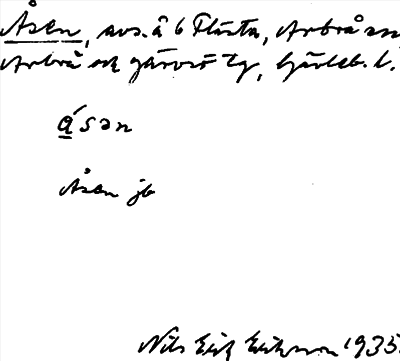 Åsen, avs. å 6 Flästa, Arbrå sn
Arbrå och Järvsö tg, Gävleb. l.
a̲´sən
Åsen jb
Nils Erik Eriksson 1935